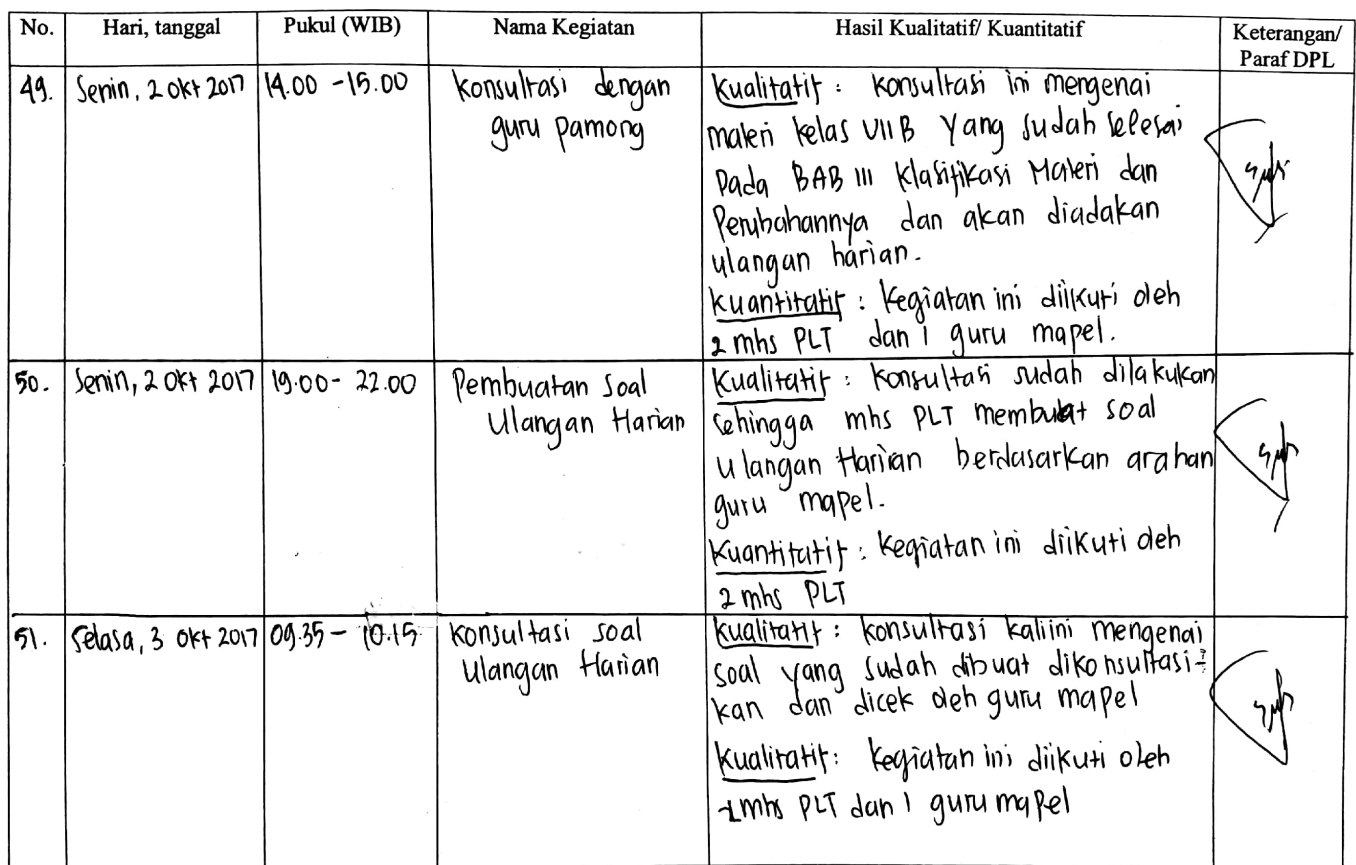 No. Hari, tanggal Pukul (WIB) Nama Kegiatan Hasil Kualitatif/ Kuantitatif Keterangan/
Paraf DPL
49. Senin, 2 Okt 2017 14.00 - 15.00 Konsultasi dengan
guru pamong
Kualitatif : Konsultasi ini mengenai
materi kelas VII B Yang sudah selesai
Pada BAB III Klasifikasi Materi dan
Perubahannya dan akan diadakan
ulangan harian.
Kuantitatif : Kegiatan ini diikuti oleh
2 mhs PLT dan 1 guru mapel.
50. Senin, 2 Okt 2017 19.00 - 22.00 Pembuatan Soal
Ulangan Harian
Kualitatif : Konsultasi sudah dilakukan
sehingga mhs PLT membuat soal
ulangan Harian berdasarkan arahan
guru mapel.
Kuantitatif : Kegiatan ini diikuti oleh
2 mhs PLT
51. Selasa, 3 Okt 2017 09.35 - 10.15 Konsultasi soal
Ulangan Harian
Kualitatif : Konsultasi kaliini mengenai
soal yang sudah dibuat dikonsultasi-
kan dan dicek oleh guru mapel
Kualitatif : Kegiatan ini diikuti oleh
mhs PLT dan 1 guru mapel